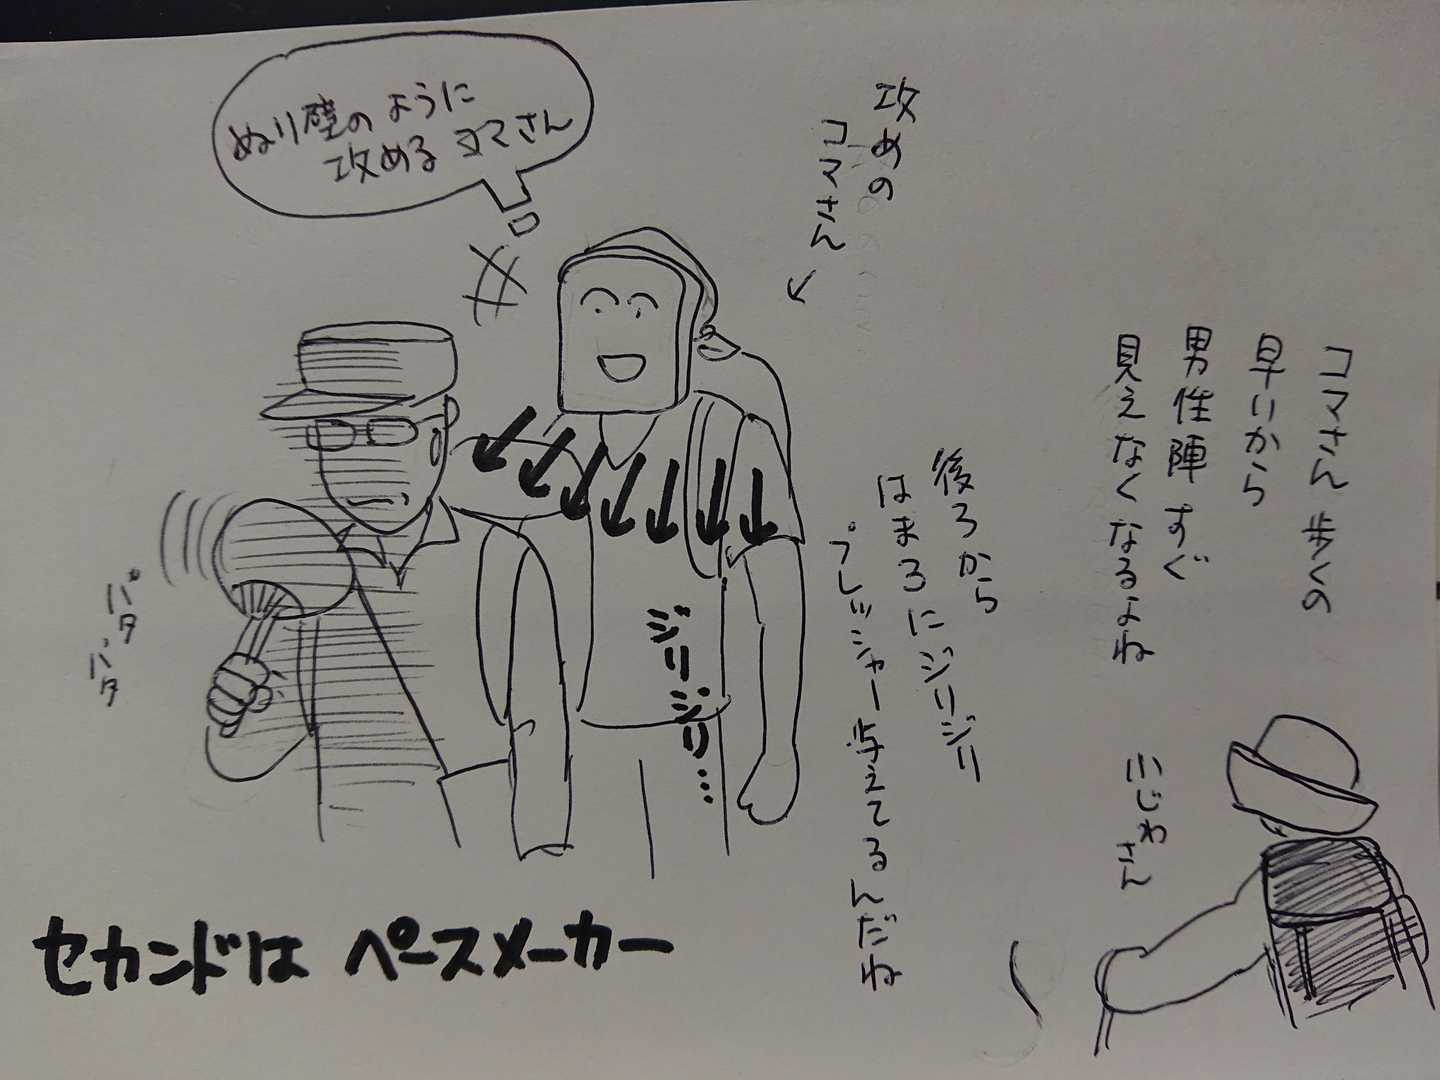 コマさん歩くの
早いから
男性陣すぐ
見えなくなるよね
小じわさん
後ろから
はまろにジリジリ
プレッシャー与えてるんだね
攻めの
コマさん
ぬり壁のように
攻めるコマさん
ジリジリ…
パタ
パタ
セカンドはペースメーカー